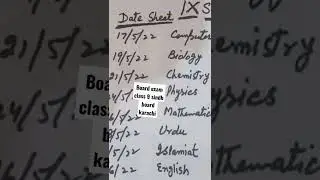 Date Sheet IX S
17/5/22 Computer
19/5/22 Biology
21/5/22 Chemistry
24/5/ Physics
6/5/ Mathematic
8/5/22 Urdu
/5/22 Islamiat
6/22 English
Board exam
class 9 sindh
board
karachi